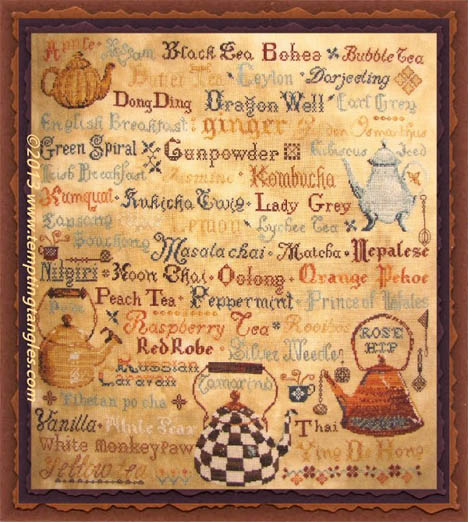 Apple Assam Black Tea Bohea Bubble Tea
Butter Tea Ceylon Darjeeling
Dong Ding Dragon Well Earl Grey
English Breakfast ginger Golden Osmanthus
Green Spiral Gunpowder Hibiscus Iced
Irish Breakfast Jasmine Kombucha
Kumquat Kukicha Twig Lady Grey
Lapsang Souchong Lemon Lychee Tea
Masala chai Matcha Nepalese
Nilgiri Noon Chai Oolong Orange Pekoe
Peach Tea Peppermint Prince of Wales
Raspberry Tea Rooibos
Red Robe Silver Needle
ROSE HIP
Russian Caravan
Tamarind
Tibetan po cha
Vanilla White Pear Thai
White monkey paw Ying De Hong
Yellow tea
©2013 www.temptingtangles.com